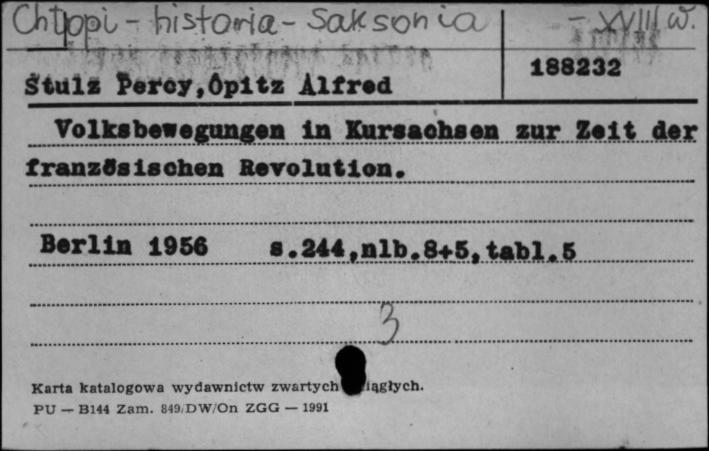 Chłopi - historia - Saksonia - XVIII w.
Stulz Percy,Opitz Alfred 188232
Volksbewegungen in Kursachsen zur Zeit der
französischen Revolution.
Berlin 1956 s.244,nlb.8+5,tabl.5
3
Karta katalogowa wydawnictw zwartych iągłych.
PU — B144 Zam. 849/DW/On ZGG — 1991